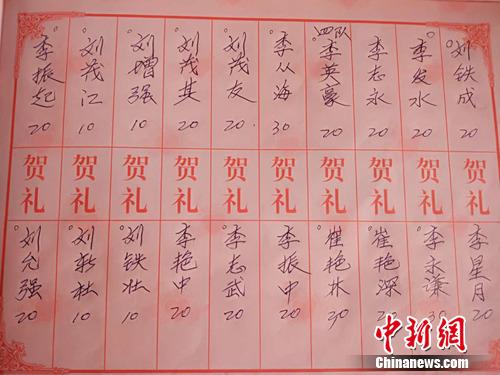 李振起 20
刘茂江 10
刘增强 10
刘茂其 20
刘茂友 20
李从海 30
四队 李英豪 20
李志永 20
李发水 20
刘铁成 20
贺礼 贺礼 贺礼 贺礼 贺礼 贺礼 贺礼 贺礼 贺礼 贺礼
刘允强 20
刘新壮 10
刘铁壮 10
李艳中 20
李志武 20
李振中 20
崔艳林 30
崔艳深
李永濂 30
李星月 20
中新网
Chinanews.com